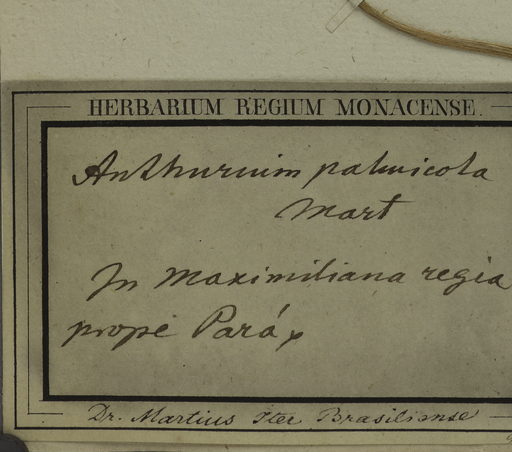 HERBARIUM REGIUM MONACENSE.
Anthurium palmicola
Mart
In Maximiliana regia
prope Pará,
Dr. Martius Iter Brasiliense